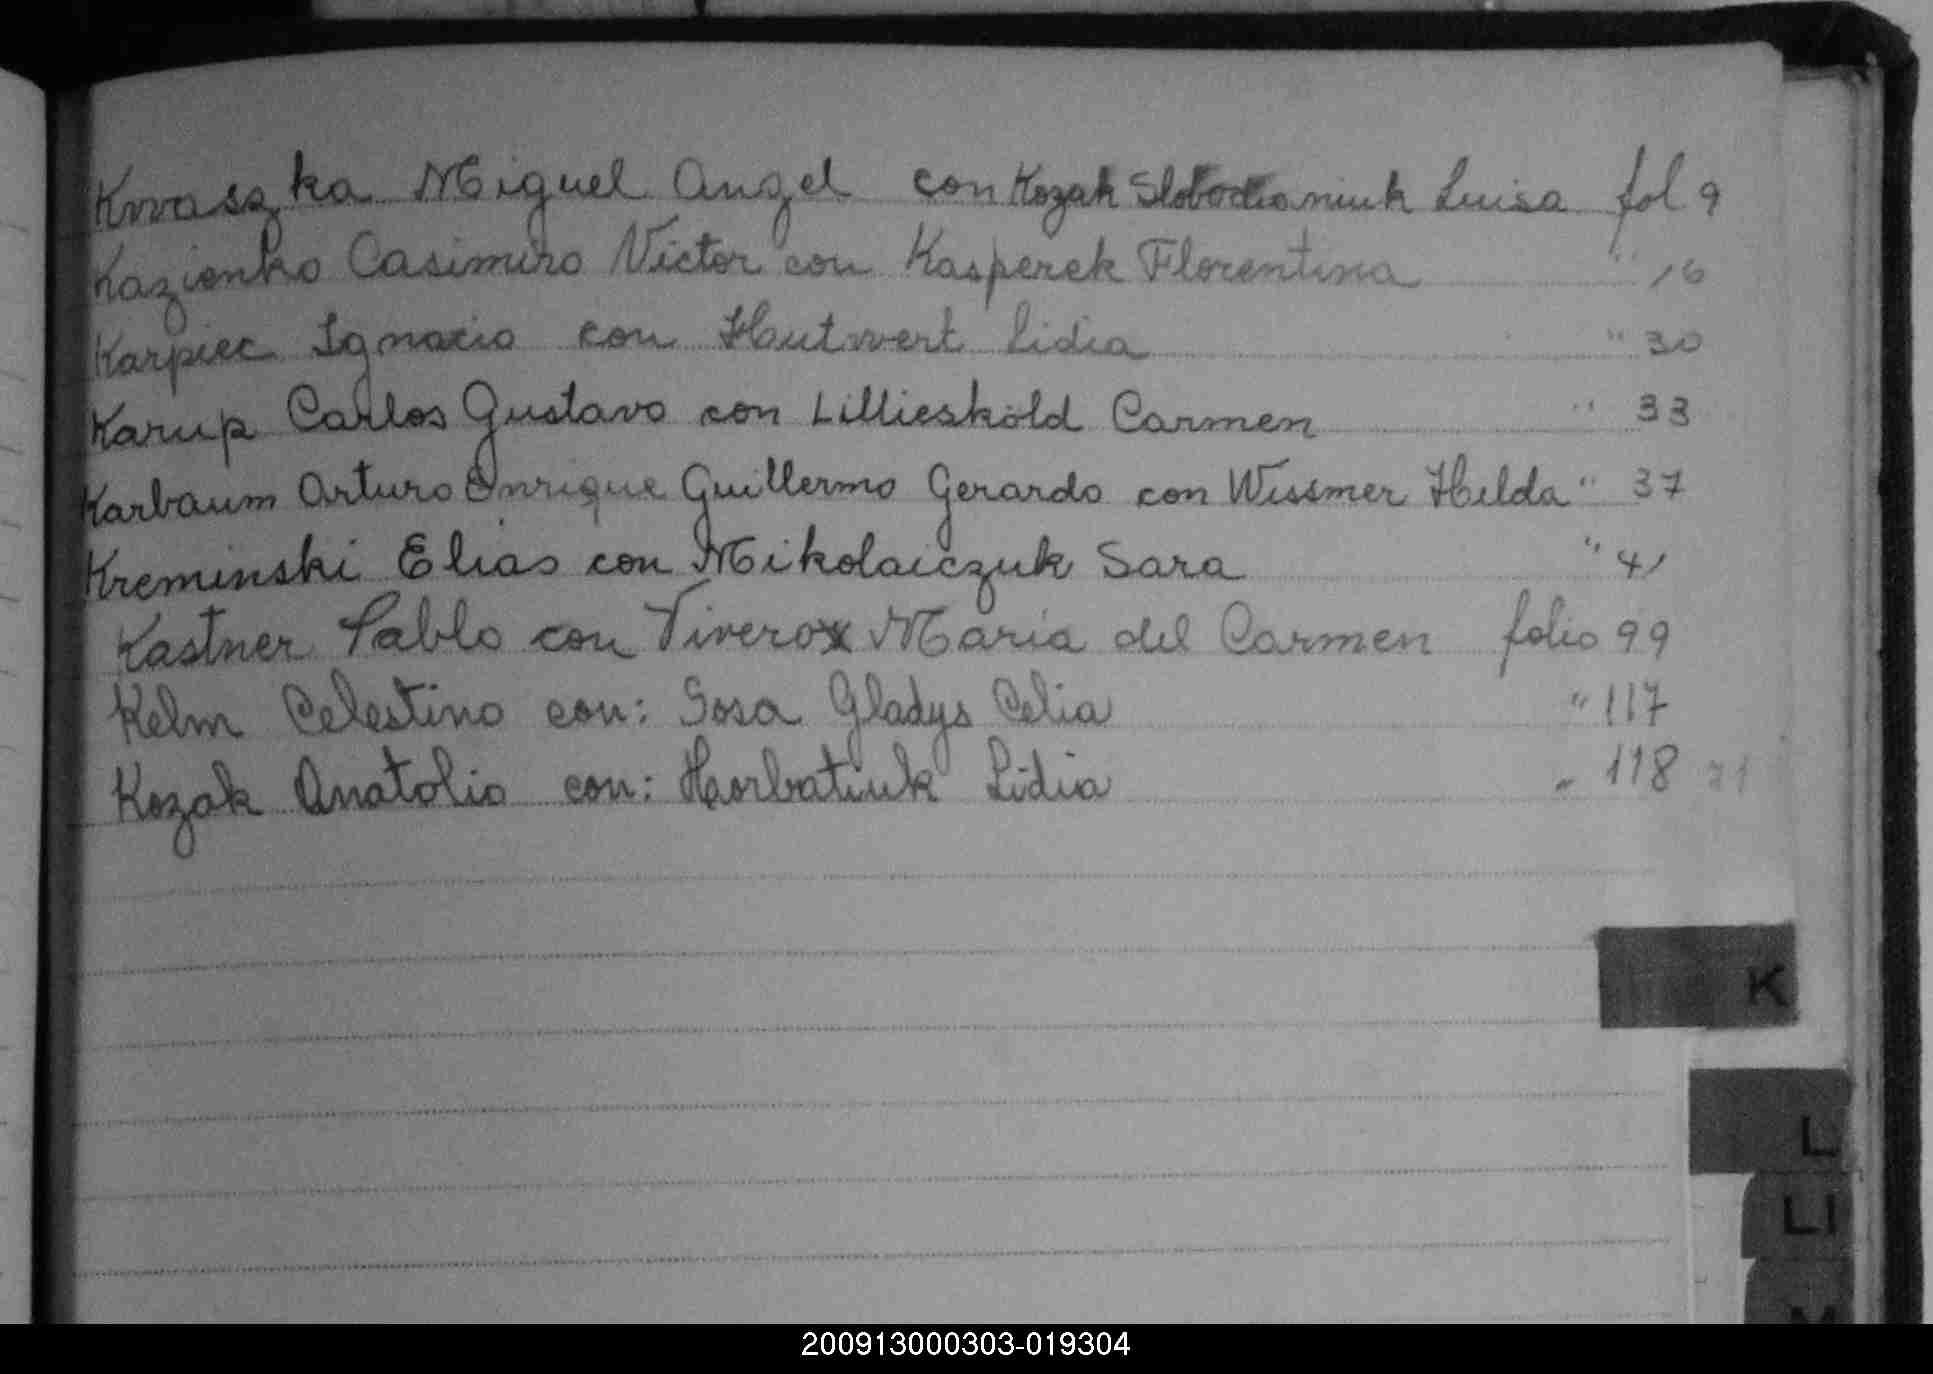 Kwaszka Miguel Angel con Kozak Slobodianiuk Luisa fol 9
Kazienko Casimiro Victor con Kasperek Florentina " 16
Karpiec Ignacio con Hutwert Lidia " 30
Karup Carlos Gustavo con Lillieskold Carmen " 33
Karbaum Arturo Enrique Guillermo Gerardo con Wissmer Hilda " 37
Kreminski Elias con Mikolaiczuk Sara " 41
Kastner Pablo con Viverox Maria del Carmen folio 99
Kelm Celestino con: Sosa Gladys Celia " 117
Kozak Anatolio con: Horbatiuk Lidia " 118
K
L
Ll
M
200913000303-019304